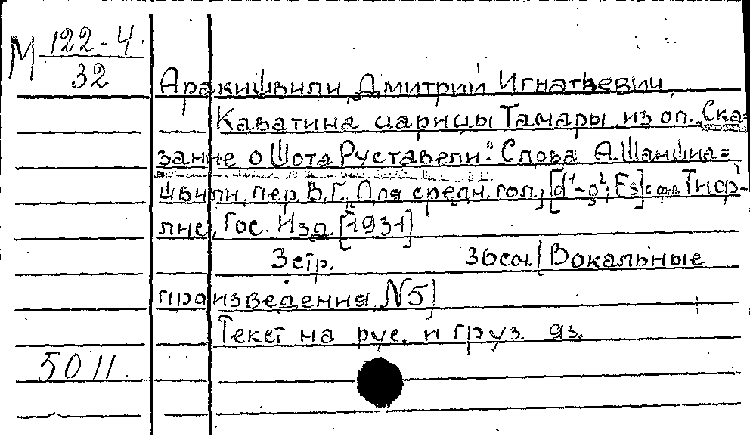 М 122-4.
32
Аракишвили, Дмитрий Игнатьевич.
Каватина царицы Тамары из оп. "Ска-
зание о Шота Руставели". Слова А. Шаншиа-
швили, пер. В. Г. Для средн. гол.
лис, Гос. Изд. [1931]
3 стр. [Вокальные
произведения N5]
Текст на рус. и груз. яз.
5011.